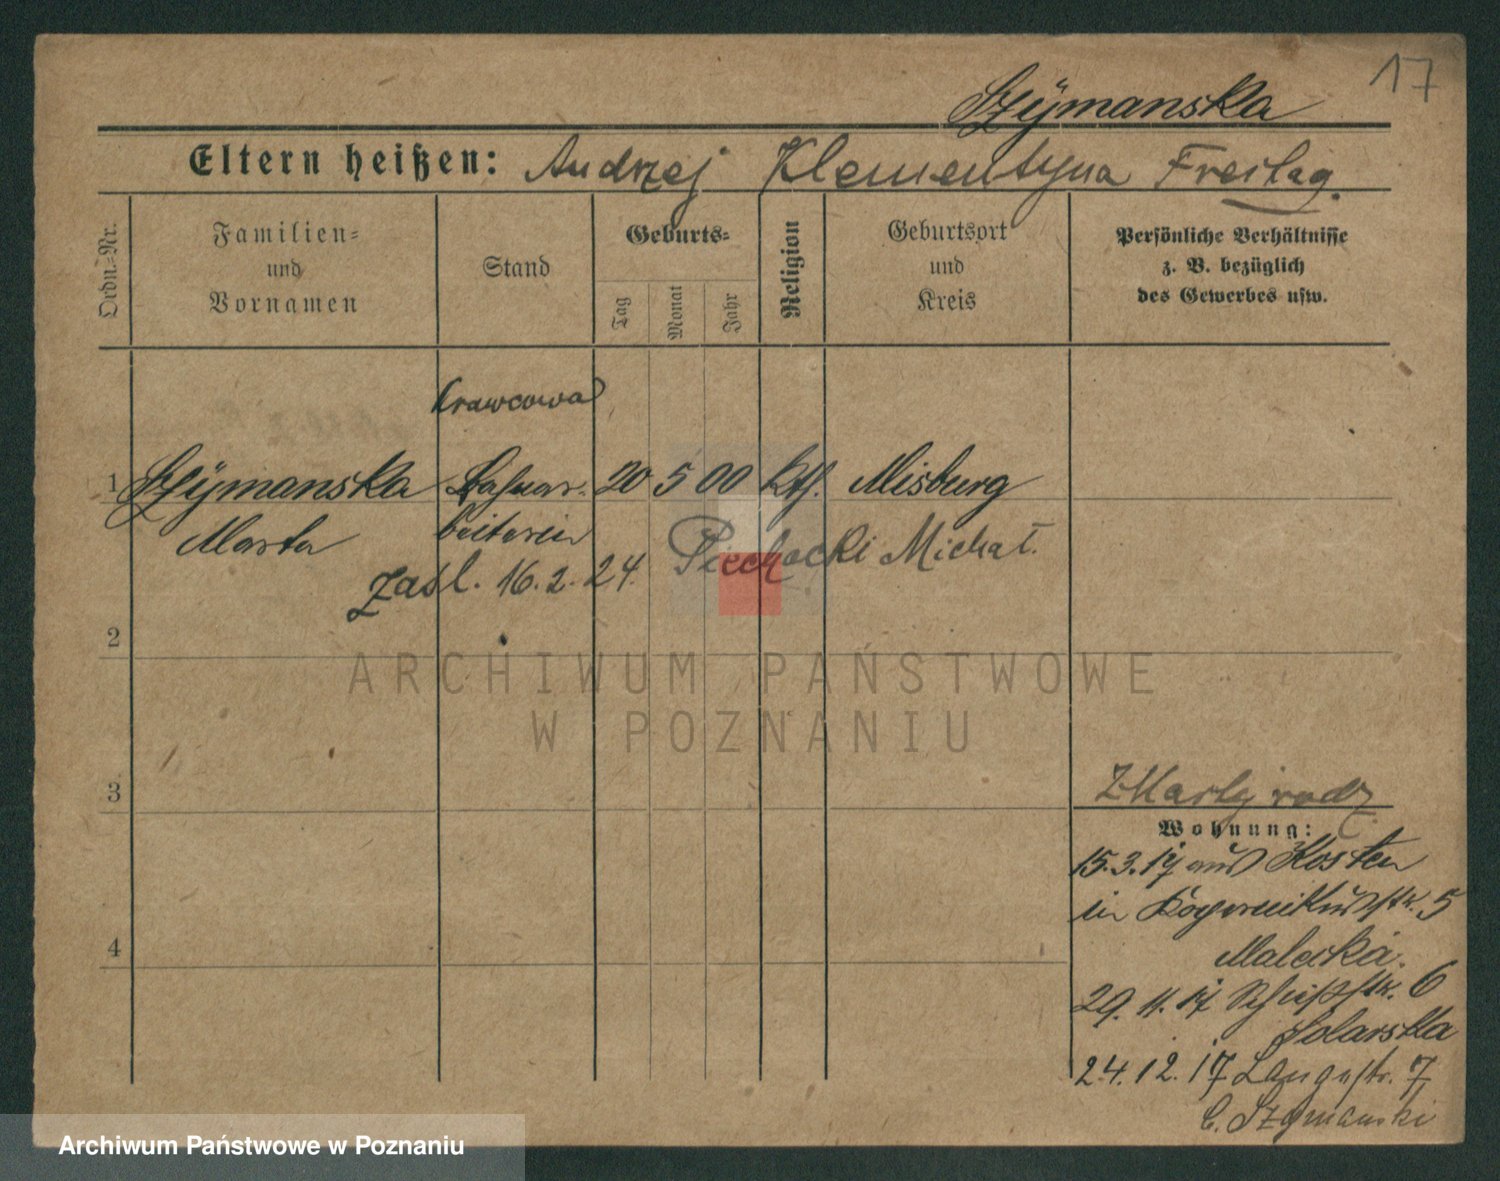 17
Szÿmanska
Eltern heißen: Andrzej Klementyna Freitag.
Ordn.-Nr.
Familien-
und
Vornamen
Stand
Geburts-
Tag
Monat
Jahr
Religion
Geburtsort
und
Kreis
Persönliche Verhältnisse
z. B. bezüglich
des Gewerbes usw.
Krawcowa
1 Szÿmanska 20 5 00 kth. Misburg
Marta beiterin
zasl. 16.2.24. Piechocki Michał.
2
ARCHIWUM PAŃSTWOWE
W POZNANIU
3
Wohnung:
15.3.17 aus Kosten
in 5
4
Malecka.
29.11.17 Schießstr. 6
Solarska
24.12.17 Langestr. 7
C. Szymanski
Archiwum Państwowe w Poznaniu